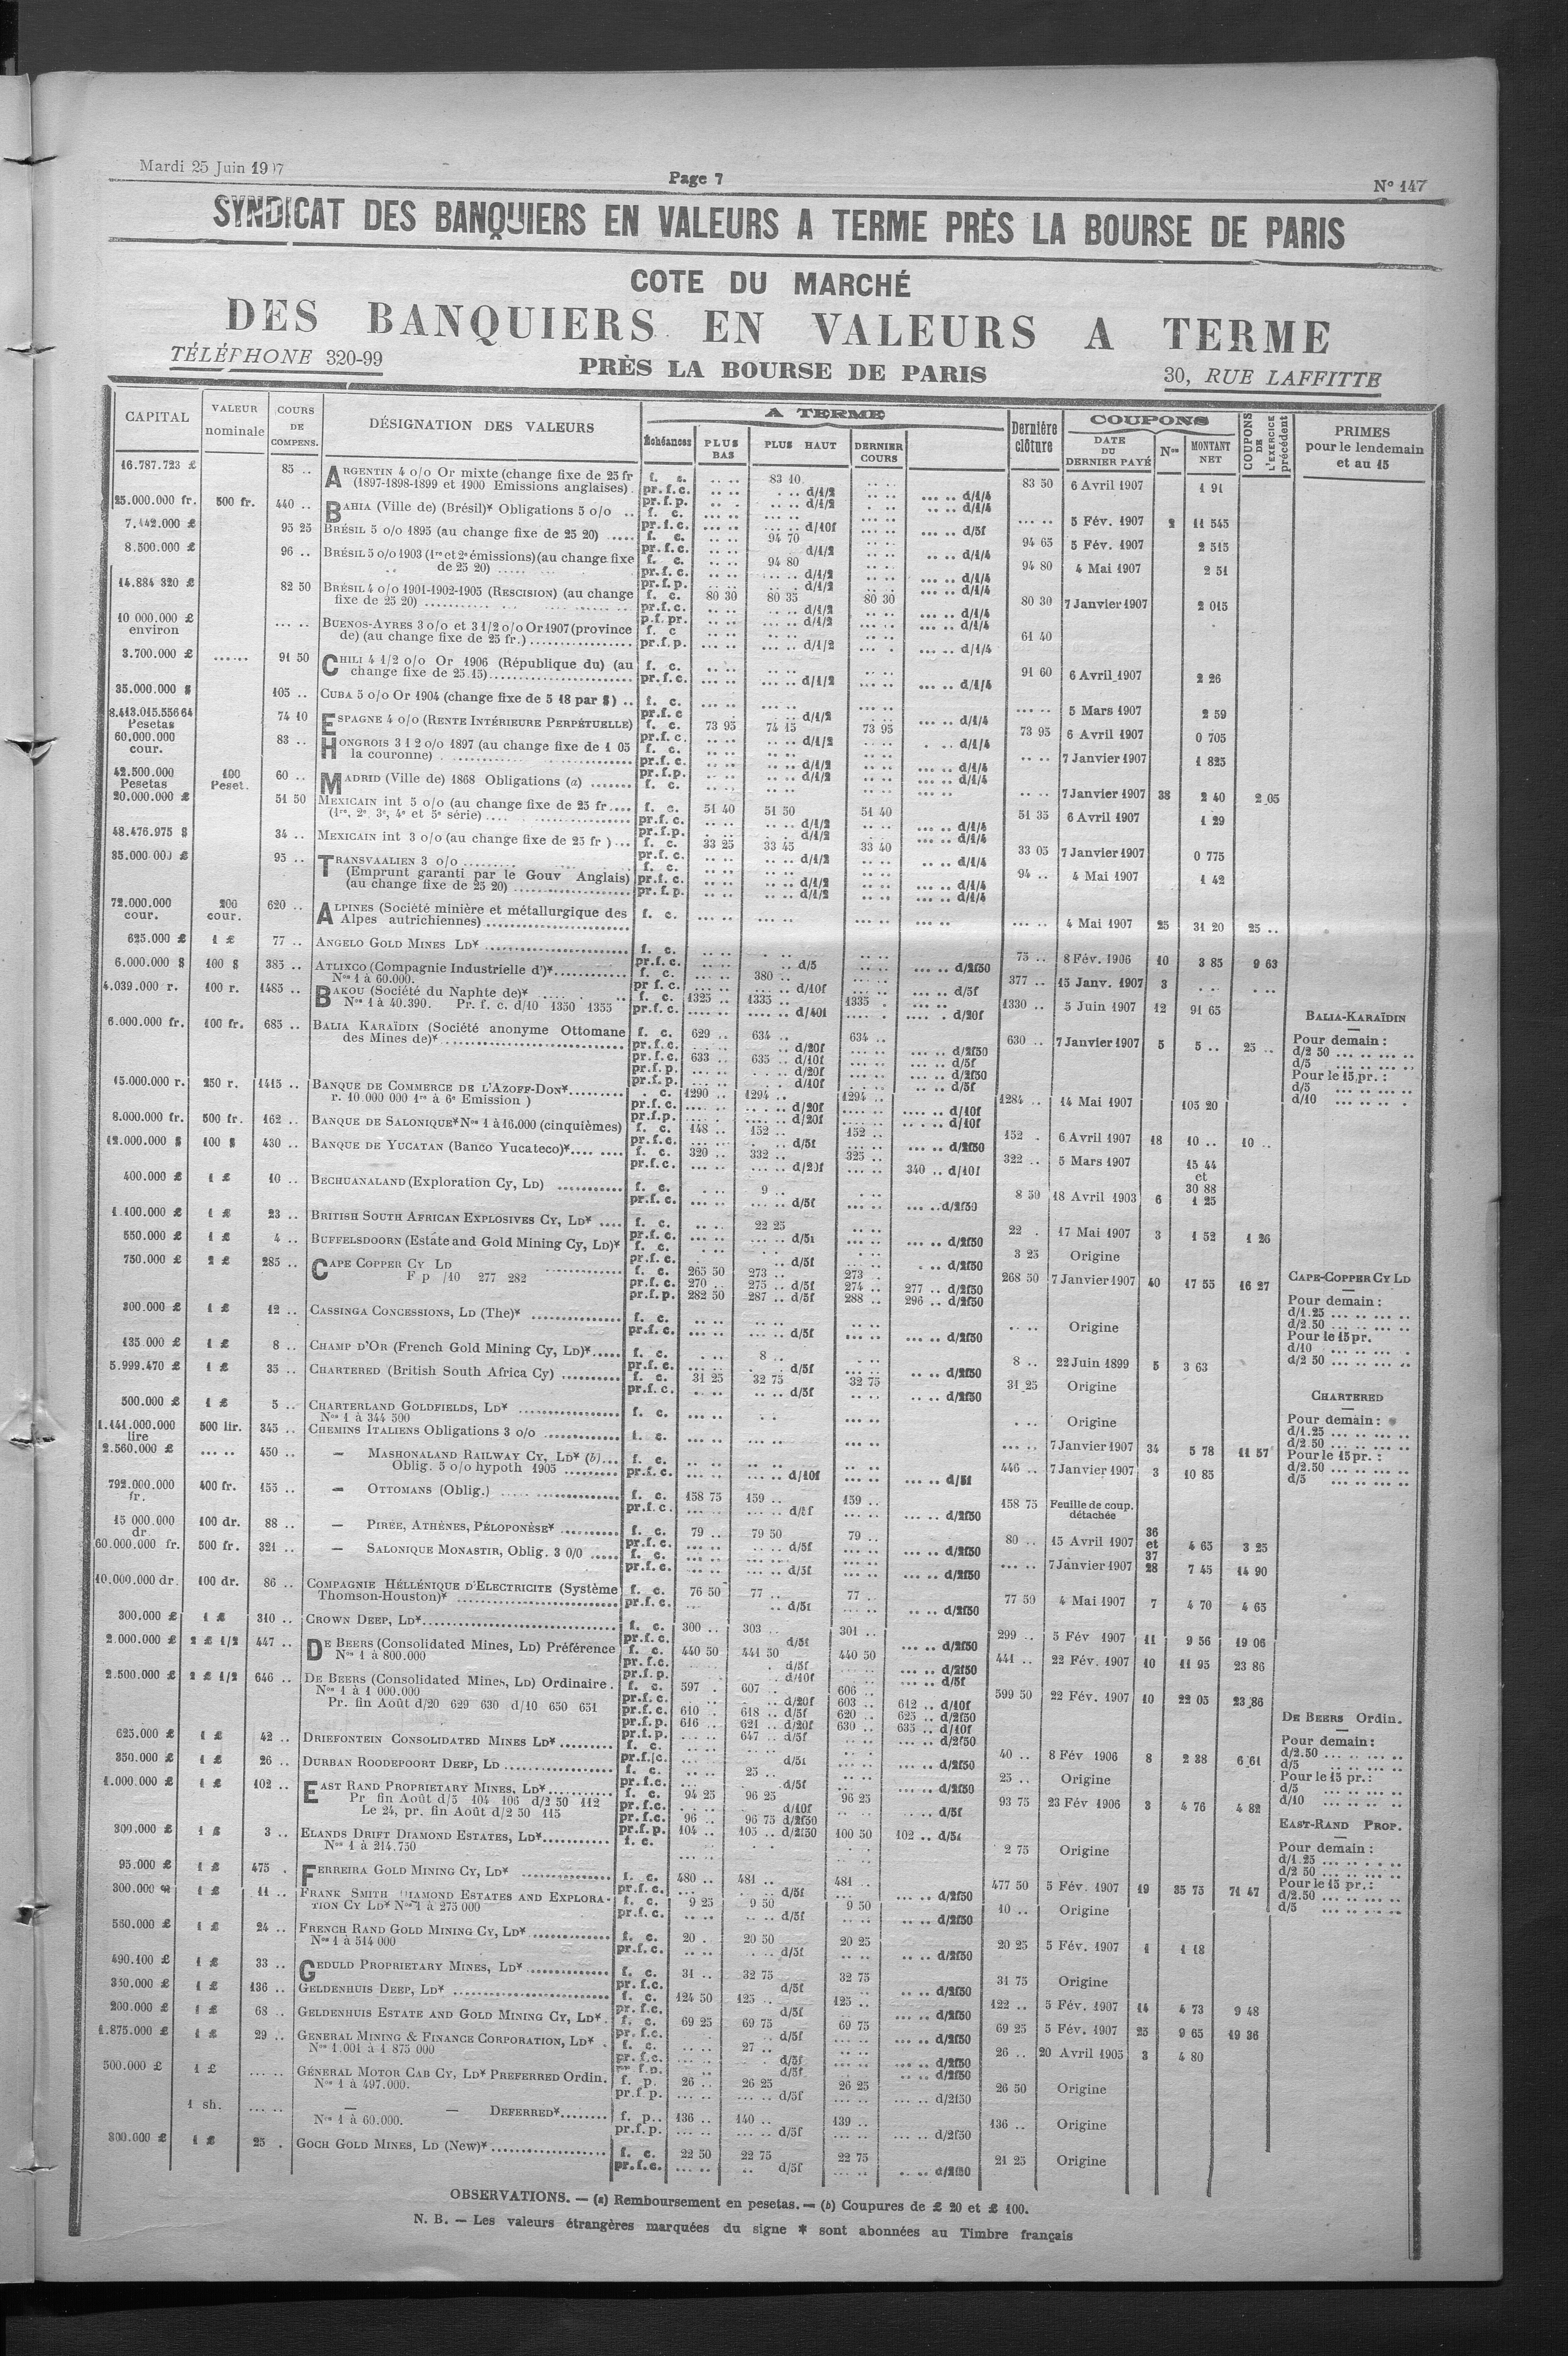 Mardi 25 Juin 19 7
Page 7
N° 147
SYNDICAT DES BANQUIERS EN VALEURS A TERME PRÈS LA BOURSE DE PARIS
COTE DU MARCHÉ
DES BANQUIERS EN VALEURS A TERME
TÉLÉPHONE 320-99
PRÈS LA BOURSE DE PARIS
30, RUE LAFFITTE
CAPITAL VALEUR nominale COURS DE COMPENS. DÉSIGNATION DES VALEURS A TERME Échéances PLUS BAS PLUS HAUT DERNIER COURS Dernière clôture COUPONS DATE DU DERNIER PAYÉ Nos MONTANT NET COUPONS DE L'EXERCICE précédent PRIMES pour le lendemain et au 15
16.787.723 £ 85 .. ARGENTIN 4 o/o Or mixte (change fixe de 25 fr f. c. 83 10 83 50 6 Avril 1907 1 91
(1897-1898-1899 et 1900 Emissions anglaises) pr.f.c. d/1/2 d/1/4
25.000.000 fr. 500 fr. 440 .. BAHIA (Ville de) (Brésil)* Obligations 5 o/o .. f. c. 5 Fév. 1907 2 11 545
7.442.000 £ 95 25 BRÉSIL 5 o/o 1895 (au change fixe de 25 20) ..... f. c. 94 70 94 65 5 Fév. 1907 2 515
8.500.000 £ 96 .. BRÉSIL 5 o/o 1903 (1re et 2e émissions) (au change fixe f. c. 94 80 94 80 4 Mai 1907 2 51
de 25 20)
14.884 320 £ 82 50 BRÉSIL 4 o/o 1901-1902-1905 (RESCISION) (au change f. c. 80 30 80 35 80 30 80 30 7 Janvier 1907 2 015
fixe de 25 20)
10 000.000 £ environ BUENOS-AYRES 3 o/o et 3 1/2 o/o Or 1907 (province f. c 61 40
de) (au change fixe de 25 fr.) pr.f.p. d/1/2 d/1/4
3.700.000 £ 91 50 CHILI 4 1/2 o/o Or 1906 (République du) (au f. c. 91 60 6 Avril 1907 2 26
change fixe de 25.15) pr.f.c. d/1/2 d/1/4
35.000.000 $ 105 .. CUBA 5 o/o Or 1904 (change fixe de 5 18 par $) .. f. c. 5 Mars 1907 2 59
8.413.015.556 64 Pesetas 74 10 ESPAGNE 4 o/o (RENTE INTÉRIEURE PERPÉTUELLE) f. c. 73 95 74 15 73 95 73 95 6 Avril 1907 0 705
60.000.000 cour. 83 .. HONGROIS 3 1 2 o/o 1897 (au change fixe de 1 05 f. c. 7 Janvier 1907 1 825
la couronne)
42.500.000 Pesetas 100 Peset. 60 .. MADRID (Ville de) 1868 Obligations (a) ....... f. c. 7 Janvier 1907 38 2 40 2 05
20.000.000 £ 51 50 MEXICAIN int 5 o/o (au change fixe de 25 fr.... f. c. 51 40 51 50 51 40 51 35 6 Avril 1907 1 29
(1re, 2e, 3e, 4e et 5e série)
48.476.975 $ 34 .. MEXICAIN int 3 o/o (au change fixe de 25 fr )... f. c. 33 25 33 45 33 40 33 05 7 Janvier 1907 0 775
35.000 000 £ 95 .. TRANSVAALIEN 3 o/o f. c. 94 .. 4 Mai 1907 1 42
(Emprunt garanti par le Gouv Anglais) pr.f.c. d/1/2 d/1/4
(au change fixe de 25 20) pr.f.p. d/1/2 d/1/4
72.000.000 cour. 200 cour. 620 .. ALPINES (Société minière et métallurgique des f. c. 4 Mai 1907 25 31 20 25 ..
Alpes autrichiennes)
625.000 £ 1 £ 77 .. ANGELO GOLD MINES LD* f. c. 75 .. 8 Fév. 1906 10 3 85 9 63
6.000.000 $ 100 $ 385 .. ATLIXCO (Compagnie Industrielle d')* f. c. 380 .. 377 .. 15 Janv. 1907 3
Nos 1 à 60.000. pr f.c. d/10f d/5f
4.039.000 r. 100 r. 1485 .. BAKOU (Société du Naphte de)* f. c. 1325 .. 1335 .. 1335 . 1330 .. 5 Juin 1907 12 91 65
Nos 1 à 40.390. Pr. f. c. d/10 1350 1355 pr.f.c. d/40f d/20f
6.000.000 fr. 100 fr. 685 .. BALIA KARAÏDIN (Société anonyme Ottomane f. c. 629 .. 634 .. 634 .. 630 .. 7 Janvier 1907 5 5 .. 25 ..
des Mines de)* pr.f.c. d/20f d/2f50
pr.f.c. 633 .. 635 .. d/10f d/5f
pr.f.p. d/20f d/2f50
pr.f.p. d/10f d/5f
15.000.000 r. 250 r. 1415 .. BANQUE DE COMMERCE DE L'AZOFF-DON* c. 1290 .. 1294 .. 1294 .. 1284 .. 14 Mai 1907 105 20
r. 10.000 000 1re à 6e Emission ) pr.f.c. d/20f d/10f
pr.f.p. d/20f d/10f
8.000.000 fr. 500 fr. 162 .. BANQUE DE SALONIQUE* Nos 1 à 16.000 (cinquièmes) f. c. 148 .. 152 .. 152 .. 152 . 6 Avril 1907 18 10 .. 10 ..
pr.f.c. d/5f d/2f50
12.000.000 $ 100 $ 430 .. BANQUE DE YUCATAN (Banco Yucateco)* f. c. 320 .. 332 .. 325 .. 322 .. 5 Mars 1907 15 44 et 30 88
pr.f.c. d/20f 340 .. d/10f
400.000 £ 1 £ 10 .. BECHUANALAND (Exploration Cy, LD) f. c. 9 .. 8 50 18 Avril 1903 6 1 25
pr.f.c. d/5f d/2f50
1.100.000 £ 1 £ 23 .. BRITISH SOUTH AFRICAN EXPLOSIVES CY, LD* .... f. c. 22 25 22 . 17 Mai 1907 3 1 52 1 26
550.000 £ 1 £ 4 .. BUFFELSDOORN (Estate and Gold Mining Cy, LD)* f. c. 3 25 Origine
750.000 £ 2 £ 285 .. CAPE COPPER CY LD f. c. 265 50 273 .. 273 .. 268 50 7 Janvier 1907 40 17 55 16 27
F p /10 277 282 pr.f.c. 270 .. 275 .. d/5f 274 .. 277 .. d/2f50
pr.f.p. 282 50 287 .. d/5f 288 .. 296 .. d/2f50
300.000 £ 1 £ 12 .. CASSINGA CONCESSIONS, LD (The)* f. c. Origine
pr.f.c. d/5f d/2f50
135.000 £ 1 £ 8 .. CHAMP D'OR (French Gold Mining Cy, LD)*..... f. c. 8 .. 8 .. 22 Juin 1899 5 3 63
pr.f.c. d/5f d/2f50
5.999.470 £ 1 £ 35 .. CHARTERED (British South Africa Cy) f. c. 31 25 32 75 32 75 31 25 Origine
pr.f.c. d/5f d/2f50
500.000 £ 1 £ 5 .. CHARTERLAND GOLDFIELDS, LD* f. c. Origine
Nos 1 à 344 500
1.441.000.000 lire 500 lir. 345 .. CHEMINS ITALIENS Obligations 3 o/o f. c. 7 Janvier 1907 34 5 78 11 57
2.560.000 £ 450 .. — MASHONALAND RAILWAY CY, LD* (b)... f. c. 446 .. 7 Janvier 1907 3 10 85
Oblig. 5 o/o hypoth 1905 pr.f.c. d/10f d/5f
792.000.000 fr. 400 fr. 155 .. — OTTOMANS (Oblig.) f. c. 158 75 159 .. 159 .. 158 75 Feuille de coup. détachée
15 000.000 dr 100 dr. 88 .. — PIRÉE, ATHÈNES, PÉLOPONÈSE* f. c. 79 .. 79 50 79 .. 80 .. 15 Avril 1907 36 et 37 4 65 3 25
60.000.000 fr. 500 fr. 321 .. — SALONIQUE MONASTIR, Oblig. 3 0/0 ..... f. c. 7 Janvier 1907 28 7 45 14 90
10.000.000 dr. 100 dr. 86 .. COMPAGNIE HÉLLÉNIQUE D'ELECTRICITE (Système f. c. 76 50 77 .. 77 .. 77 50 4 Mai 1907 7 4 70 4 65
Thomson-Houston)* pr.f.c. d/5f d/2f50
300.000 £ 1 £ 310 .. CROWN DEEP, LD* f. c. 300 .. 303 .. 301 .. 299 .. 5 Fév 1907 11 9 56 19 06
2.000.000 £ 2 £ 1/2 447 .. DE BEERS (Consolidated Mines, LD) Préférence f. c. 440 50 441 50 440 50 441 .. 22 Fév. 1907 10 11 95 23 86
Nos 1 à 800.000
2.500.000 £ 2 £ 1/2 646 .. DE BEERS (Consolidated Mines, LD) Ordinaire . f. c. 597 . 607 .. 606 .. 599 50 22 Fév. 1907 10 22 05 23.86
Nos 1 à 1 000.000 pr.f.c. d/20f 603 .. 612 .. d/10f
Pr. fin Août d/20 629 630 d/10 650 651 pr.f.c. 610 .. 618 .. d/5f 620 .. 625 .. d/2f50
pr.f.p. 616 .. 621 .. d/20f 630 .. 635 .. d/10f
pr.f.p. 647 .. d/5f d/2f50
625.000 £ 1 £ 42 .. DRIEFONTEIN CONSOLIDATED MINES LD* f. c. 40 .. 8 Fév 1906 8 2 38 6 61
350.000 £ 1 £ 26 .. DURBAN ROODEPOORT DEEP, LD f. c. 25 .. 25 .. Origine
1.000.000 £ 1 £ 102 .. EAST RAND PROPRIETARY MINES, LD* f. c. 94 25 96 25 96 25 93 75 23 Fév 1906 3 4 76 4 82
Pr fin Août d/5 104 106 d/2 50 112 pr.f.c. d/10f d/5f
Le 24, pr. fin Août d/2 50 115 pr.f.c. 96 .. 96 75 d/2f50
pr.f.p. 104 .. 105 .. d/2f50 100 50 102 .. d/5f
300.000 £ 1 £ 3 .. ELANDS DRIFT DIAMOND ESTATES, LD* f. c. 2 75 Origine
Nos 1 à 214.750
95.000 £ 1 £ 475 . FERREIRA GOLD MINING CY, LD* f. c. 480 .. 481 .. 481 .. 477 50 5 Fév. 1907 19 35 75 71 47
300.000 £ 1 £ 11 .. FRANK SMITH DIAMOND ESTATES AND EXPLORA- f. c. 9 25 9 50 9 50 10 .. Origine
TION CY LD* Nos 1 à 275 000 pr.f.c. d/5f d/2f50
560.000 £ 1 £ 24 .. FRENCH RAND GOLD MINING CY, LD* f. c. 20 . 20 50 20 25 20 25 5 Fév. 1907 1 1 18
Nos 1 à 514 000 pr.f.c. d/5f d/2f50
490.100 £ 1 £ 33 .. GEDULD PROPRIETARY MINES, LD* f. c. 31 .. 32 75 32 75 31 75 Origine
350.000 £ 1 £ 136 .. GELDENHUIS DEEP, LD* f. c. 124 50 125 .. 125 .. 122 .. 5 Fév. 1907 14 4 73 9 48
200.000 £ 1 £ 68 .. GELDENHUIS ESTATE AND GOLD MINING CY, LD*. f. c. 69 25 69 75 69 75 69 25 5 Fév. 1907 25 9 65 19 36
1.875.000 £ 1 £ 29 .. GENERAL MINING & FINANCE CORPORATION, LD* f. c. 27 .. 26 .. 20 Avril 1905 3 4 80
Nos 1.001 à 1 875 000
500.000 £ 1 £ GÉNÉRAL MOTOR CAB CY, LD* PREFERRED Ordin. f. p. 26 .. 26 25 26 25 26 50 Origine
Nos 1 à 497.000. pr.f.p. d/5f d/2f50
1 sh. — — DEFERRED* f. p. 136 .. 140 .. 139 .. 136 .. Origine
Nos 1 à 60.000. pr.f.p. d/5f d/2f50
300.000 £ 1 £ 25 . GOCH GOLD MINES, LD (New)* f. c. 22 50 22 75 22 75 21 25 Origine
pr.f.c. d/5f d/2f50
BALIA-KARAÏDIN
Pour demain :
d/2 50
d/5
Pour le 15 pr. :
d/5
d/10
CAPE-COPPER CY LD
Pour demain :
d/1.25
d/2.50
Pour le 15 pr.
d/10
d/2 50
CHARTERED
Pour demain :
d/1.25
d/2.50
Pour le 15 pr. :
d/2.50
d/5
DE BEERS Ordin.
Pour demain :
d/2.50
d/5
Pour le 15 pr. :
d/5
d/10
EAST-RAND PROP.
Pour demain :
d/1.25
d/2 50
Pour le 15 pr. :
d/2.50
d/5
OBSERVATIONS. — (a) Remboursement en pesetas. — (b) Coupures de £ 20 et £ 100.
N. B. — Les valeurs étrangères marquées du signe * sont abonnées au Timbre français